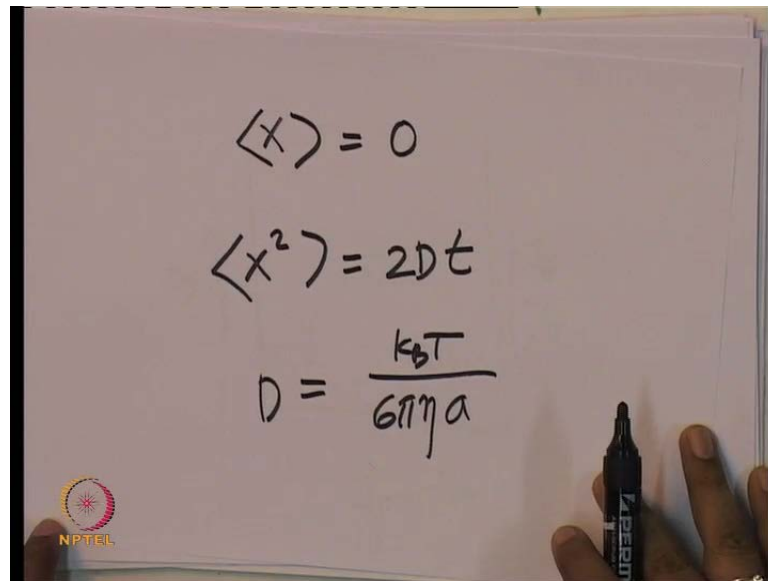 ⟨x⟩ = 0
⟨x²⟩ = 2Dt
D = k_BT / 6πηa
NPTEL
PERM